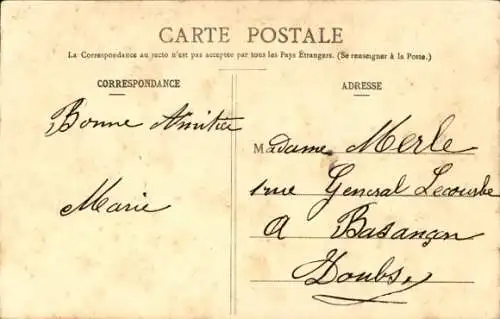 CARTE POSTALE
La Correspondance au recto n'est pas acceptée par tous les Pays Étrangers. (Se renseigner à la Poste.)
CORRESPONDANCE
Bonne Amitié
Marie
ADRESSE
Madame Merle
1 rue General Lecourbe
A Basançon
Doubs